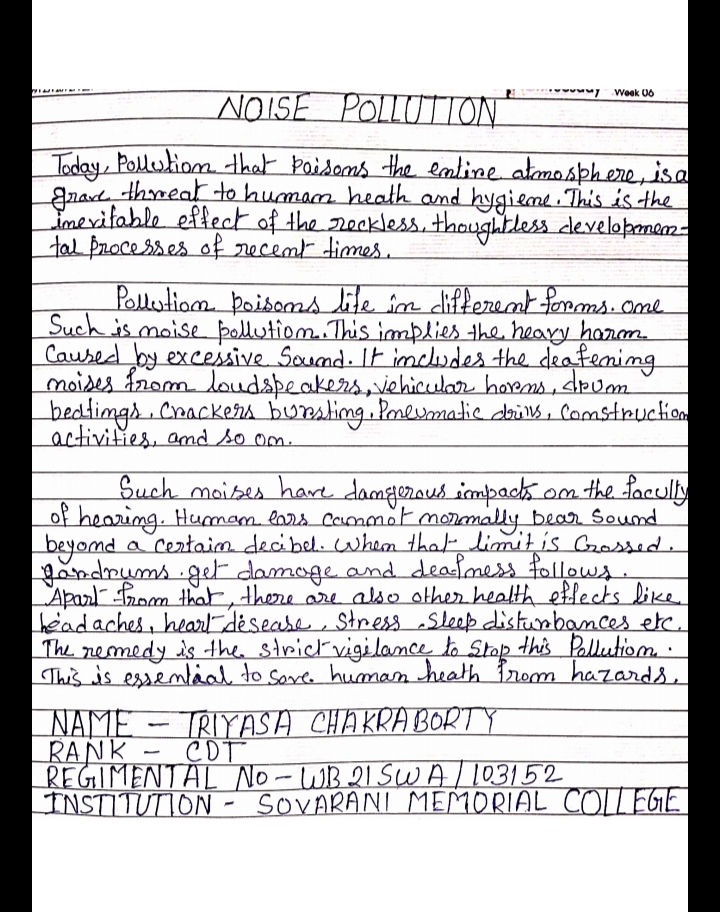 Week 06
NOISE POLLUTION
Today, Pollution that poisons the entire atmosphere, is a
grave threat to human heath and hygiene. This is the
inevitable effect of the reckless, thoughtless developmen-
tal processes of recent times.
Pollution poisons life in different forms. one
Such is noise pollution. This implies the heavy harm
Caused by excessive Sound. It includes the deafening
noises from loudspeakers, vehicular horns, drum
beatings. Crackers bursting. Pneumatic drills, Construction
activities, and so on.
Such noises have dangerous impacts on the faculty
of hearing. Human ears cannot normally bear Sound
beyond a certain decibel. When that limit is Crossed.
get damage and deafness follows.
Apart from that, there are also other health effects like
headaches, heart desease, Stress, Sleep disturbances etc.
The remedy is the strict vigilance to Stop this Pollution.
This is essential to save human heath from hazards.
NAME - TRIYASA CHAKRABORTY
RANK - CDT
REGIMENTAL No - WB21SWA/103152
INSTITUTION - SOVARANI MEMORIAL COLLEGE